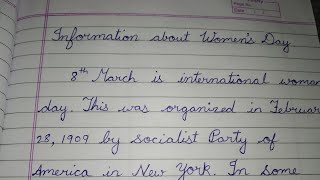 Information about Women's Day
8th March is international woma
day. This was organized in Februar
28, 1909 by Socialist Party of
America in New York. In some